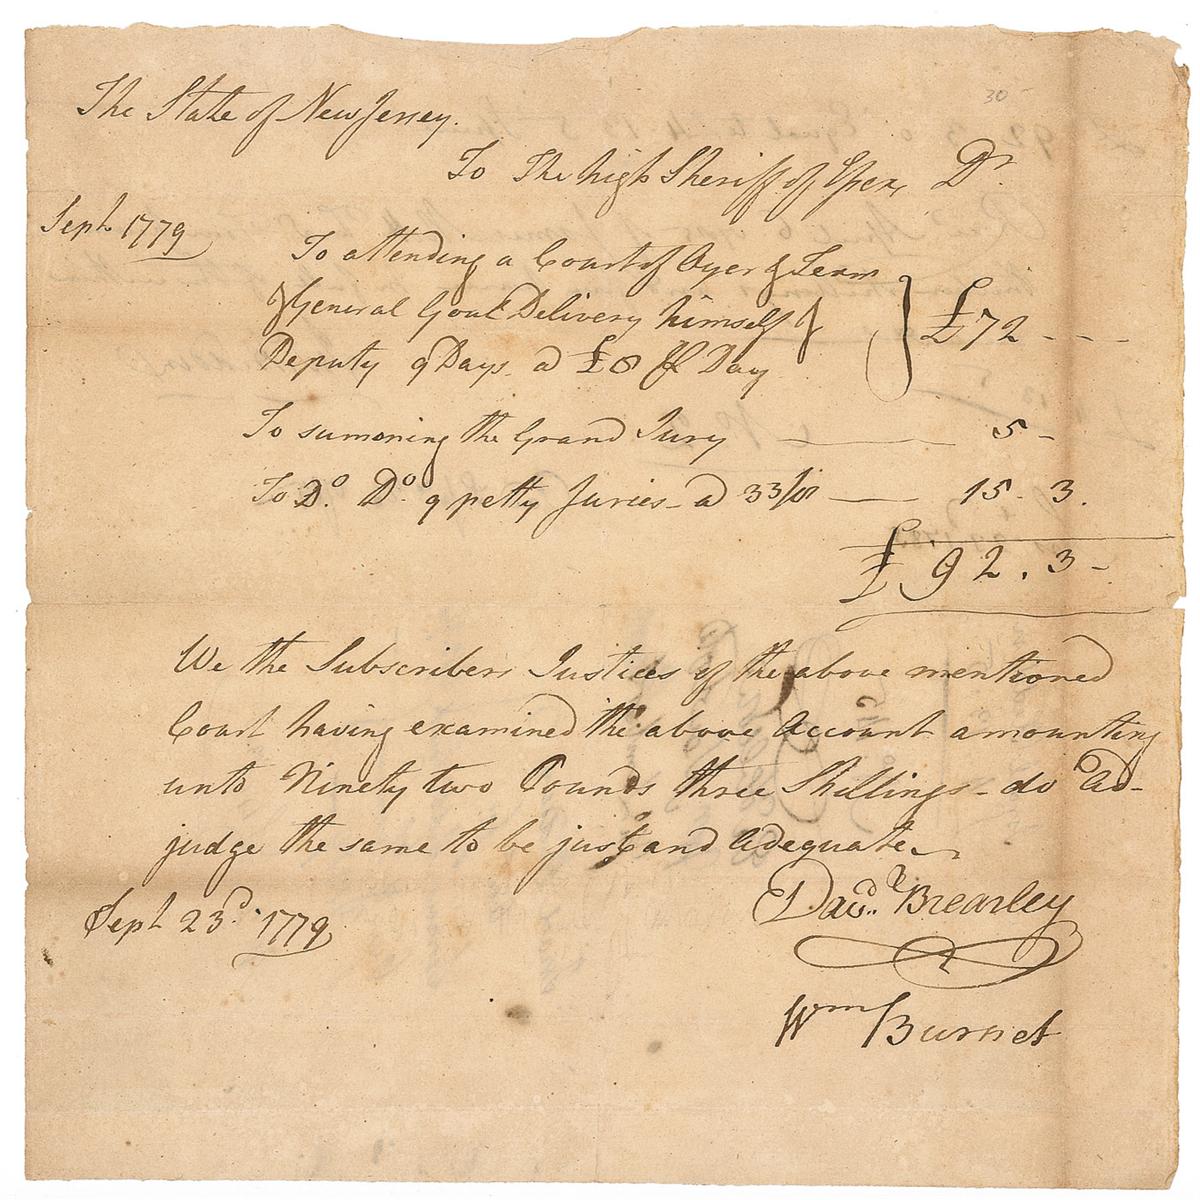 30
The State of New Jersey.
To The high Sheriff of Essex Dr
Sept. 1779
To attending a Court of Oyer & Term
& General Goal Delivery himself &
Deputy 9 Days a £8 pr Day } £72 - - -
To sumoning the Grand Jury — 5 -
To Do. Do. 9 petty Juries - a 33/8 — 15 - 3.
£92.3-
We the Subscribers Justices of the above mentioned
Court having examined the above Account amounting
unto Ninety two Pounds three Shillings - do Ad-
judge the same to be just and Adequate.
Sept 23d. 1779
Davd. Brearley
Wm Burnet